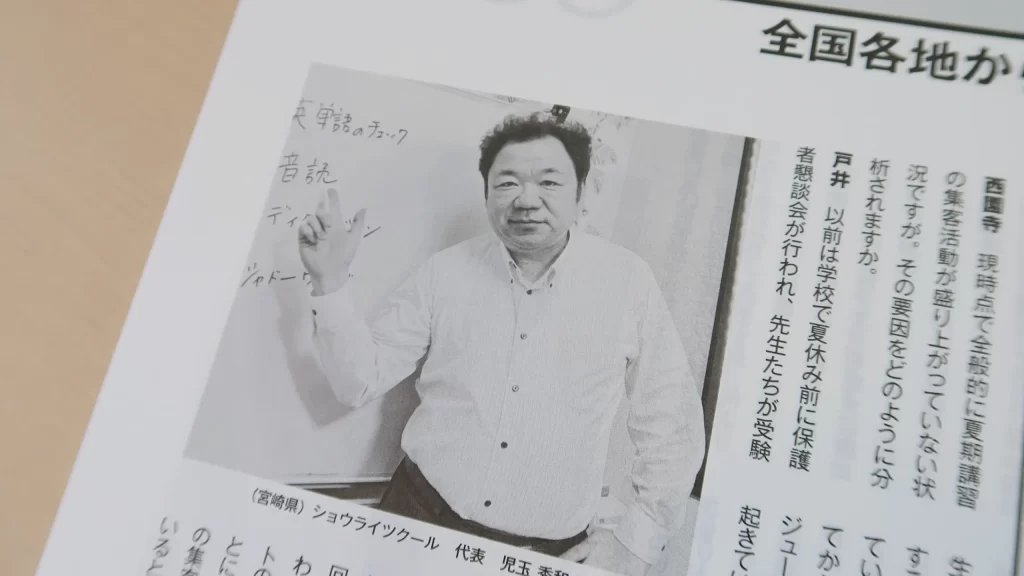 全国各地か
西園寺 現時点で全般的に夏期講習
の集客活動が盛り上がっていない状
況ですが。その要因をどのように分
析されますか。
戸井 以前は学校で夏休み前に保護
者懇談会が行われ、先生たちが受験
生
す
てい
てか
ジュー
起きてい
英単語のチェック
音読
シャドー
(宮崎県) ショウライツクール 代表 児玉 秀和
回
わ
トの
とに
の集客
いると